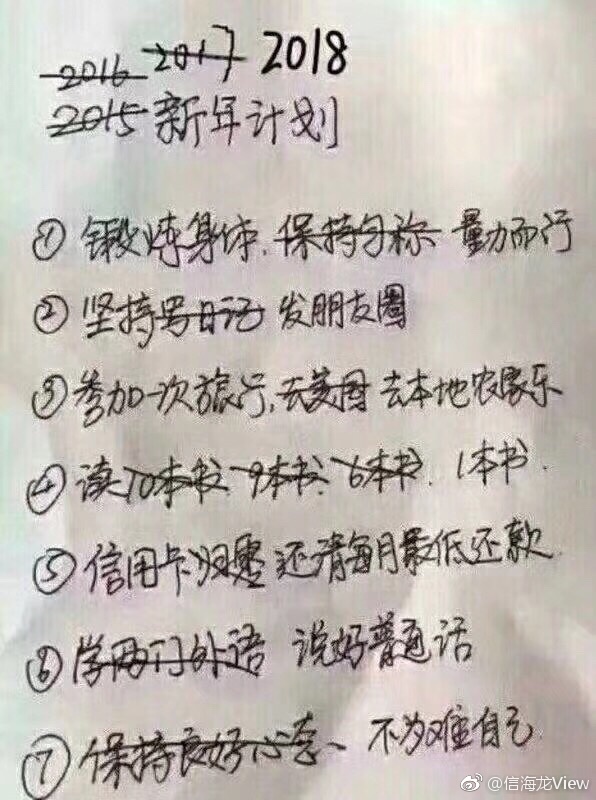 2016 2017 2018
2015 新年计划
① 锻炼身体, 保持匀称 量力而行
② 坚持写日记 发朋友圈
③ 参加一次旅行, 去美国 去本地农家乐
④ 读10本书 9本书 6本书. 1本书.
⑤ 信用卡归零 还清每月最低还款
⑥ 学两门外语 说好普通话
⑦ 保持良好心态、不为难自己
@信海龙View